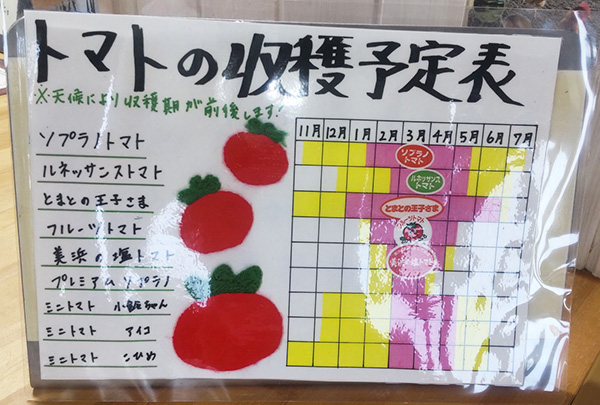 トマトの収穫予定表
※天候により収穫期が前後します!
11月 12月 1月 2月 3月 4月 5月 6月 7月
ソプラノトマト
ルネッサンストマト
とまとの王子さま
フルーツトマト
美浜の塩トマト
プレミアムソプラノ
ミニトマト 小鈴ちゃん
ミニトマト アイコ
ミニトマト こひめ
ソプラノ
トマト
ルネッサンス
トマト
とまとの王子さま
美浜の塩トマト